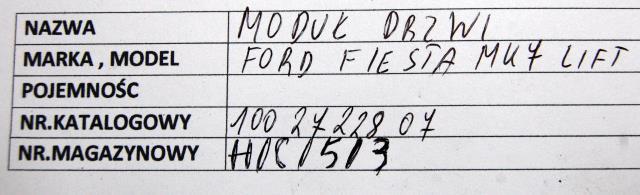 NAZWA MODUŁ DRZWI
MARKA , MODEL FORD FIESTA MK7 LIFT
POJEMNOŚC
NR.KATALOGOWY 100 27 228 07
NR.MAGAZYNOWY